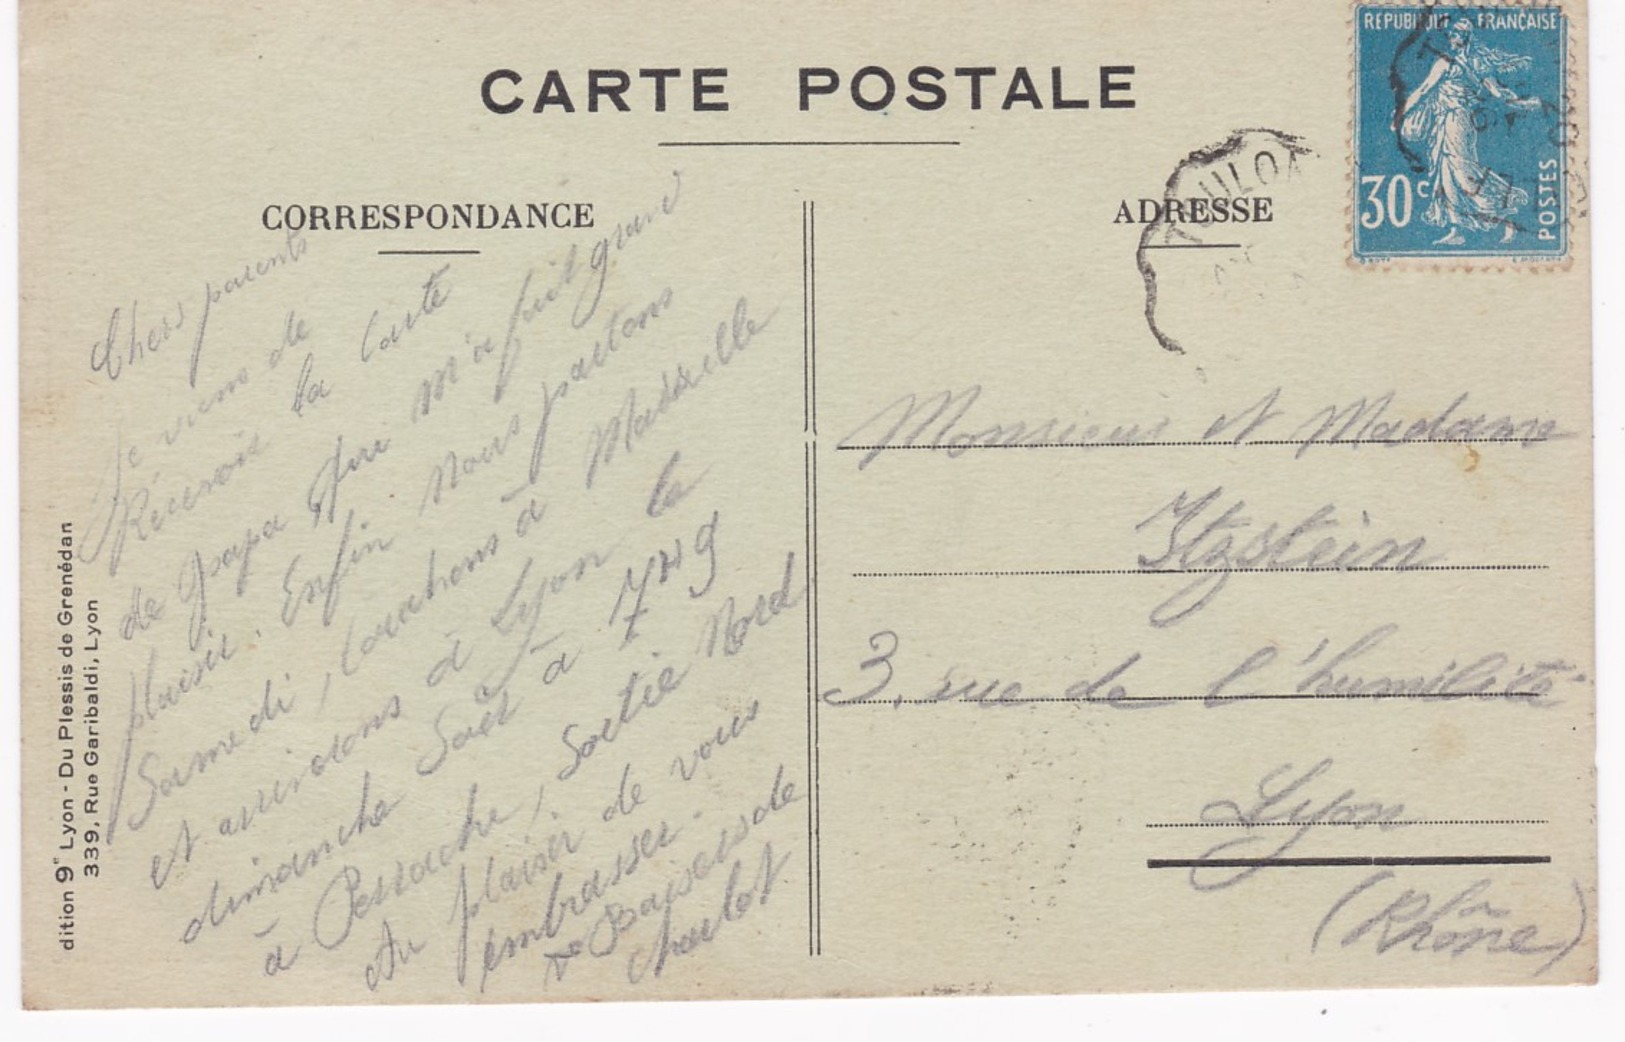 CARTE POSTALE
CORRESPONDANCE
ADRESSE
RÉPUBLIQUE FRANÇAISE
30c
POSTES
TOULON
Chers parents
Je viens de
Recevoir la carte
de papa qui m'a fait grand
plaisir. Enfin nous partons
Samedi, couchons à Marseille
et arriverons à Lyon le
dimanche Soir à 7H 9
à Perrache, Sortie Nord
Au plaisir de vous
embrasser.
Baisers de
Charlot
Monsieur et Madame
Itzstein
3, rue de l'humilité
Lyon
(Rhône)
dition 9" Lyon - Du Plessis de Grenédan
339, Rue Garibaldi, Lyon